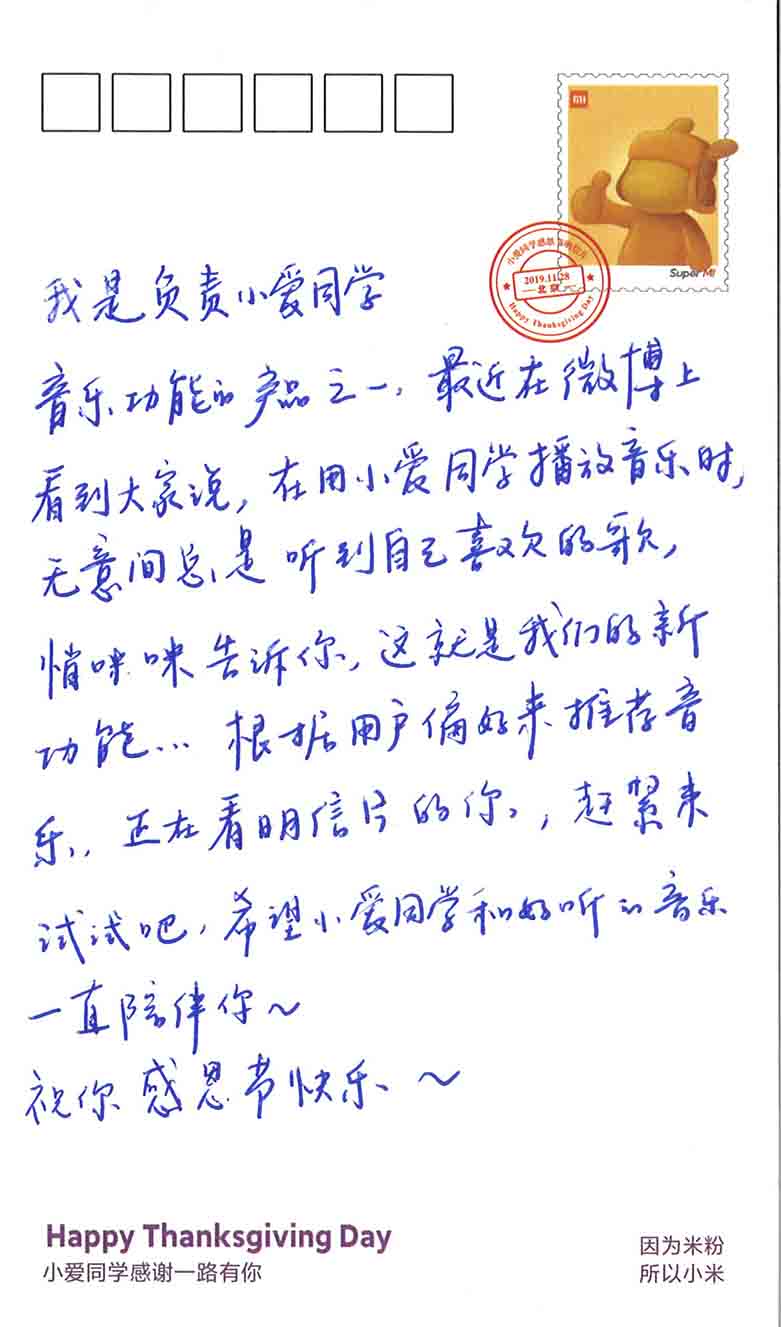 MI
Super MI
小爱同学感恩节明信片
2019.11.28
北京
Happy Thanksgiving Day
我是负责小爱同学
音乐功能的产品之一，最近在微博上
看到大家说，在用小爱同学播放音乐时，
无意间总是听到自己喜欢的歌，
悄咪咪告诉你，这就是我们的新
功能... 根据用户偏好来推荐音
乐，正在看明信片的你，赶紧来
试试吧，希望小爱同学和好听的音乐
一直陪伴你～
祝你感恩节快乐～
Happy Thanksgiving Day
小爱同学感谢一路有你
因为米粉
所以小米